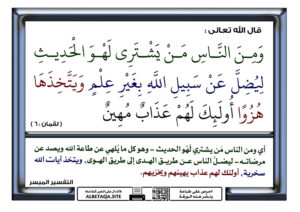 قال الله تعالى :
وَمِنَ النَّاسِ مَنْ يَشْتَرِي لَهْوَ الْحَدِيثِ
لِيُضِلَّ عَنْ سَبِيلِ اللَّهِ بِغَيْرِ عِلْمٍ وَيَتَّخِذَهَا
هُزُوًا أُولَئِكَ لَهُمْ عَذَابٌ مُهِينٌ
(لقمان: ٦)
أي ومن الناس مَن يشتري لَهْو الحديث - وهو كل ما يُلهي عن طاعة الله ويصد عن
مرضاته - ليضلَّ الناس عن طريق الهدى إلى طريق الهوى، ويتخذ آيات الله
سخرية، أولئك لهم عذاب يهينهم ويخزيهم.
التفسير الميسر
احرص على طباعة
ونشر هذه البطاقة
ALBETAQA.SITE